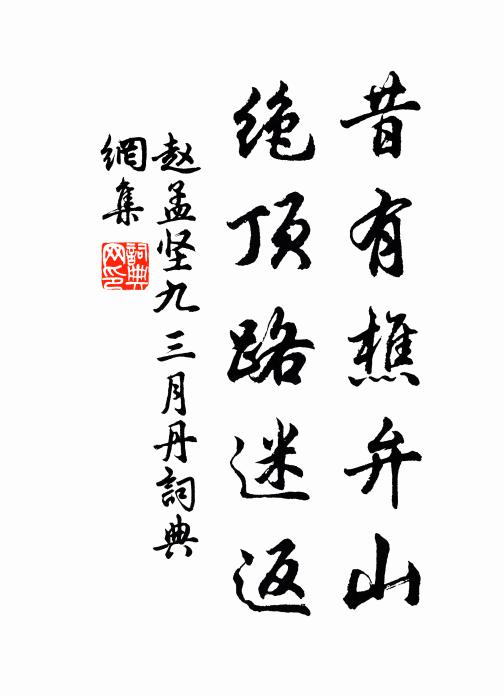 昔有樵弁山
绝顶路迷返
赵孟坚九三月丹詞典
網集
詞典
网印